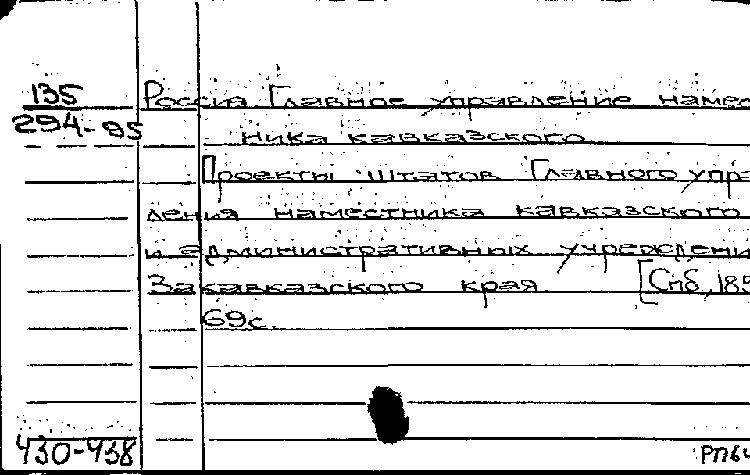 135 Россия Главное управление намест
294-95 ника кавказского
Проекты штатов Главного упра
ления наместника кавказского
и административных учреждени
Закавказского края [Спб, 185
69с.
430-438 РП64